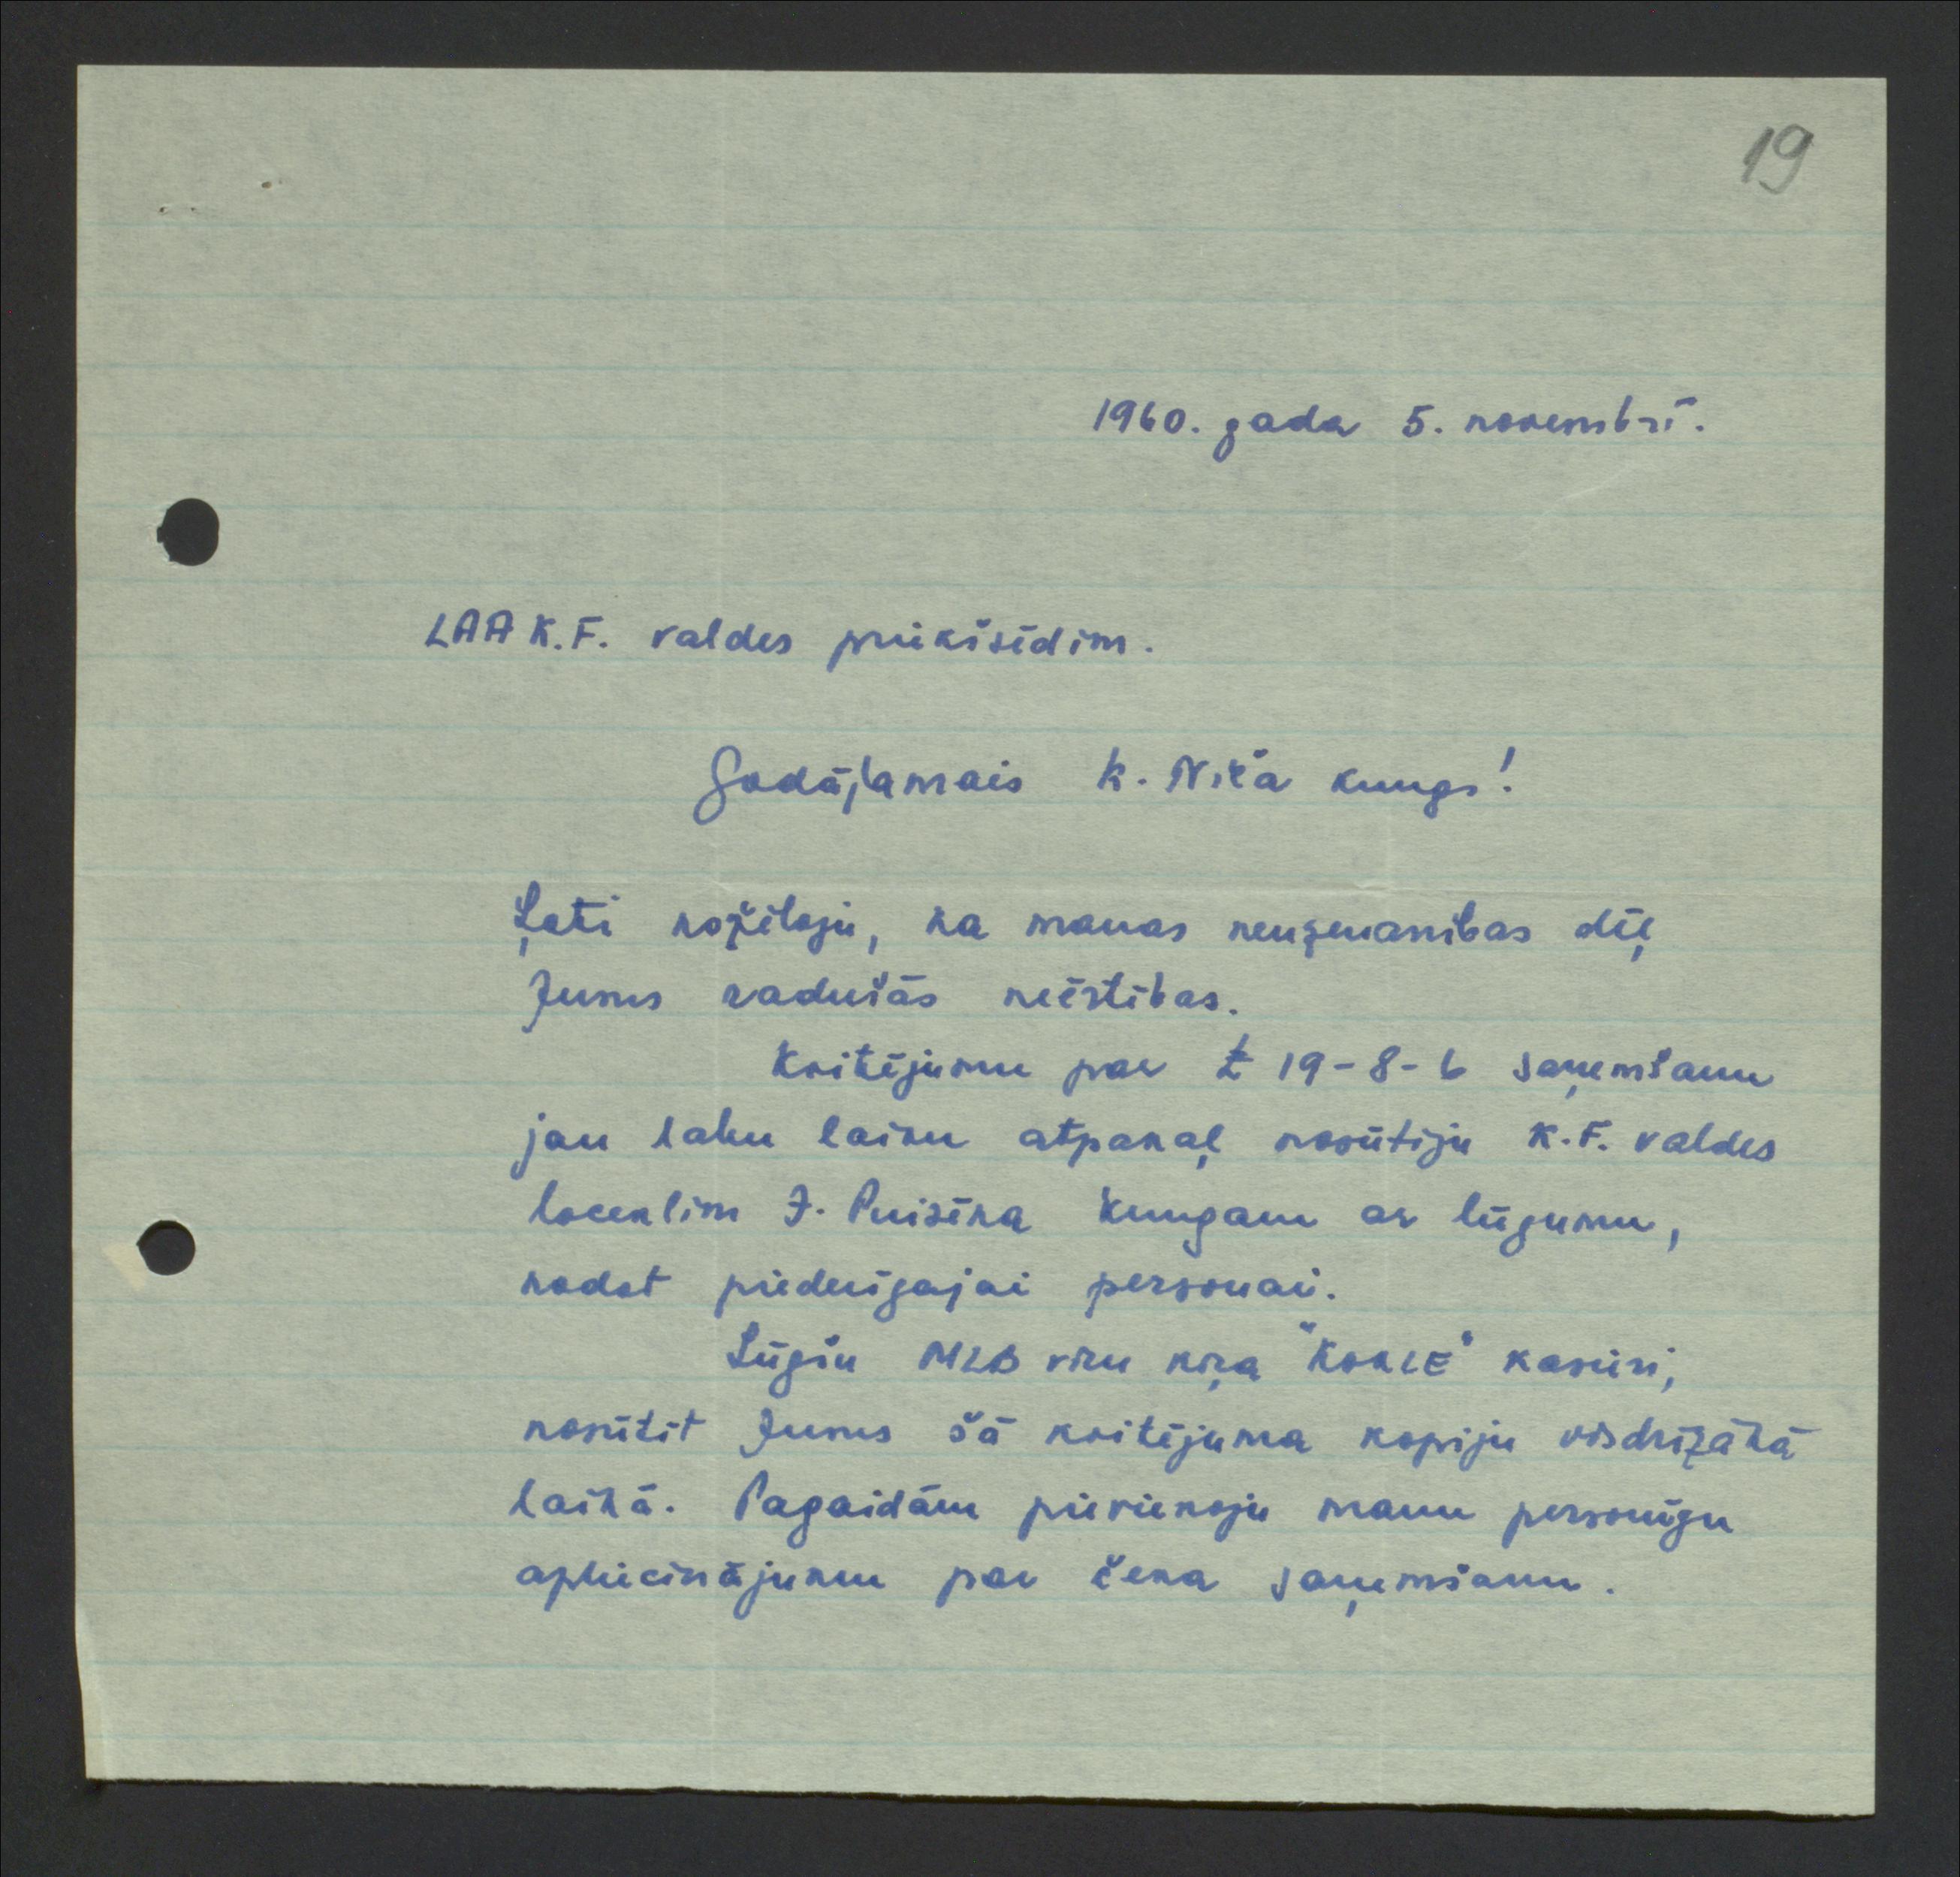 19
1960. gada 5. novembrī.
LAA K.F. valdes priekšsēdim.
Godājamais K. Niča kungs!
Ļoti nožēloju, ka manas neuzmanības dēļ
Jums radušās neērtības.
Kvitējumu par £ 19-8-6 saņemšanu
jau labu laiku atpakaļ nosūtīju K.F. valdes
loceklim J. Puisēna kungam ar lūgumu,
nodot piederīgajai personai.
Lūgšu MLB vīru kŗa "KOKLE" kasieri,
nosūtīt Jums šā kvitējuma kopiju visdrīzākā
laikā. Pagaidām pievienoju manu personīgu
apliecinājumu par čeka saņemšanu.